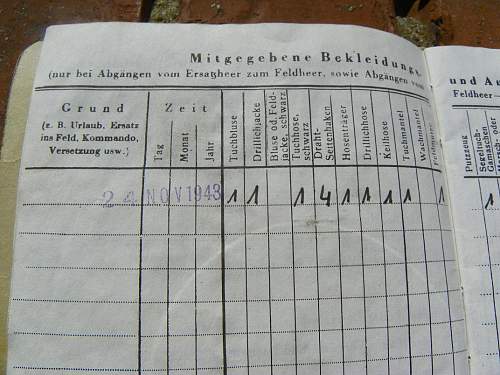 Mitgegebene Bekleidungs
(nur bei Abgängen vom Ersatzheer zum Feldheer, sowie Abgängen vom
und Au
Feldheer —
Grund
(z. B. Urlaub, Ersatz
ins Feld, Kommando,
Versetzung usw.)
Zeit
Tag
Monat
Jahr
Tuchbluse
Drillichjacke
Bluse od. Feld-
jacke, schwarz
Tuchhose,
schwarz
Draht-
Seitenhaken
Hosenträger
Drillichhose
Keilhose
Tuchmantel
Wachmantel
Putzzeug
Segeltuch-
Gamaschen
24 NOV 1943 1 1 1 4 1 1 1 1 1 1